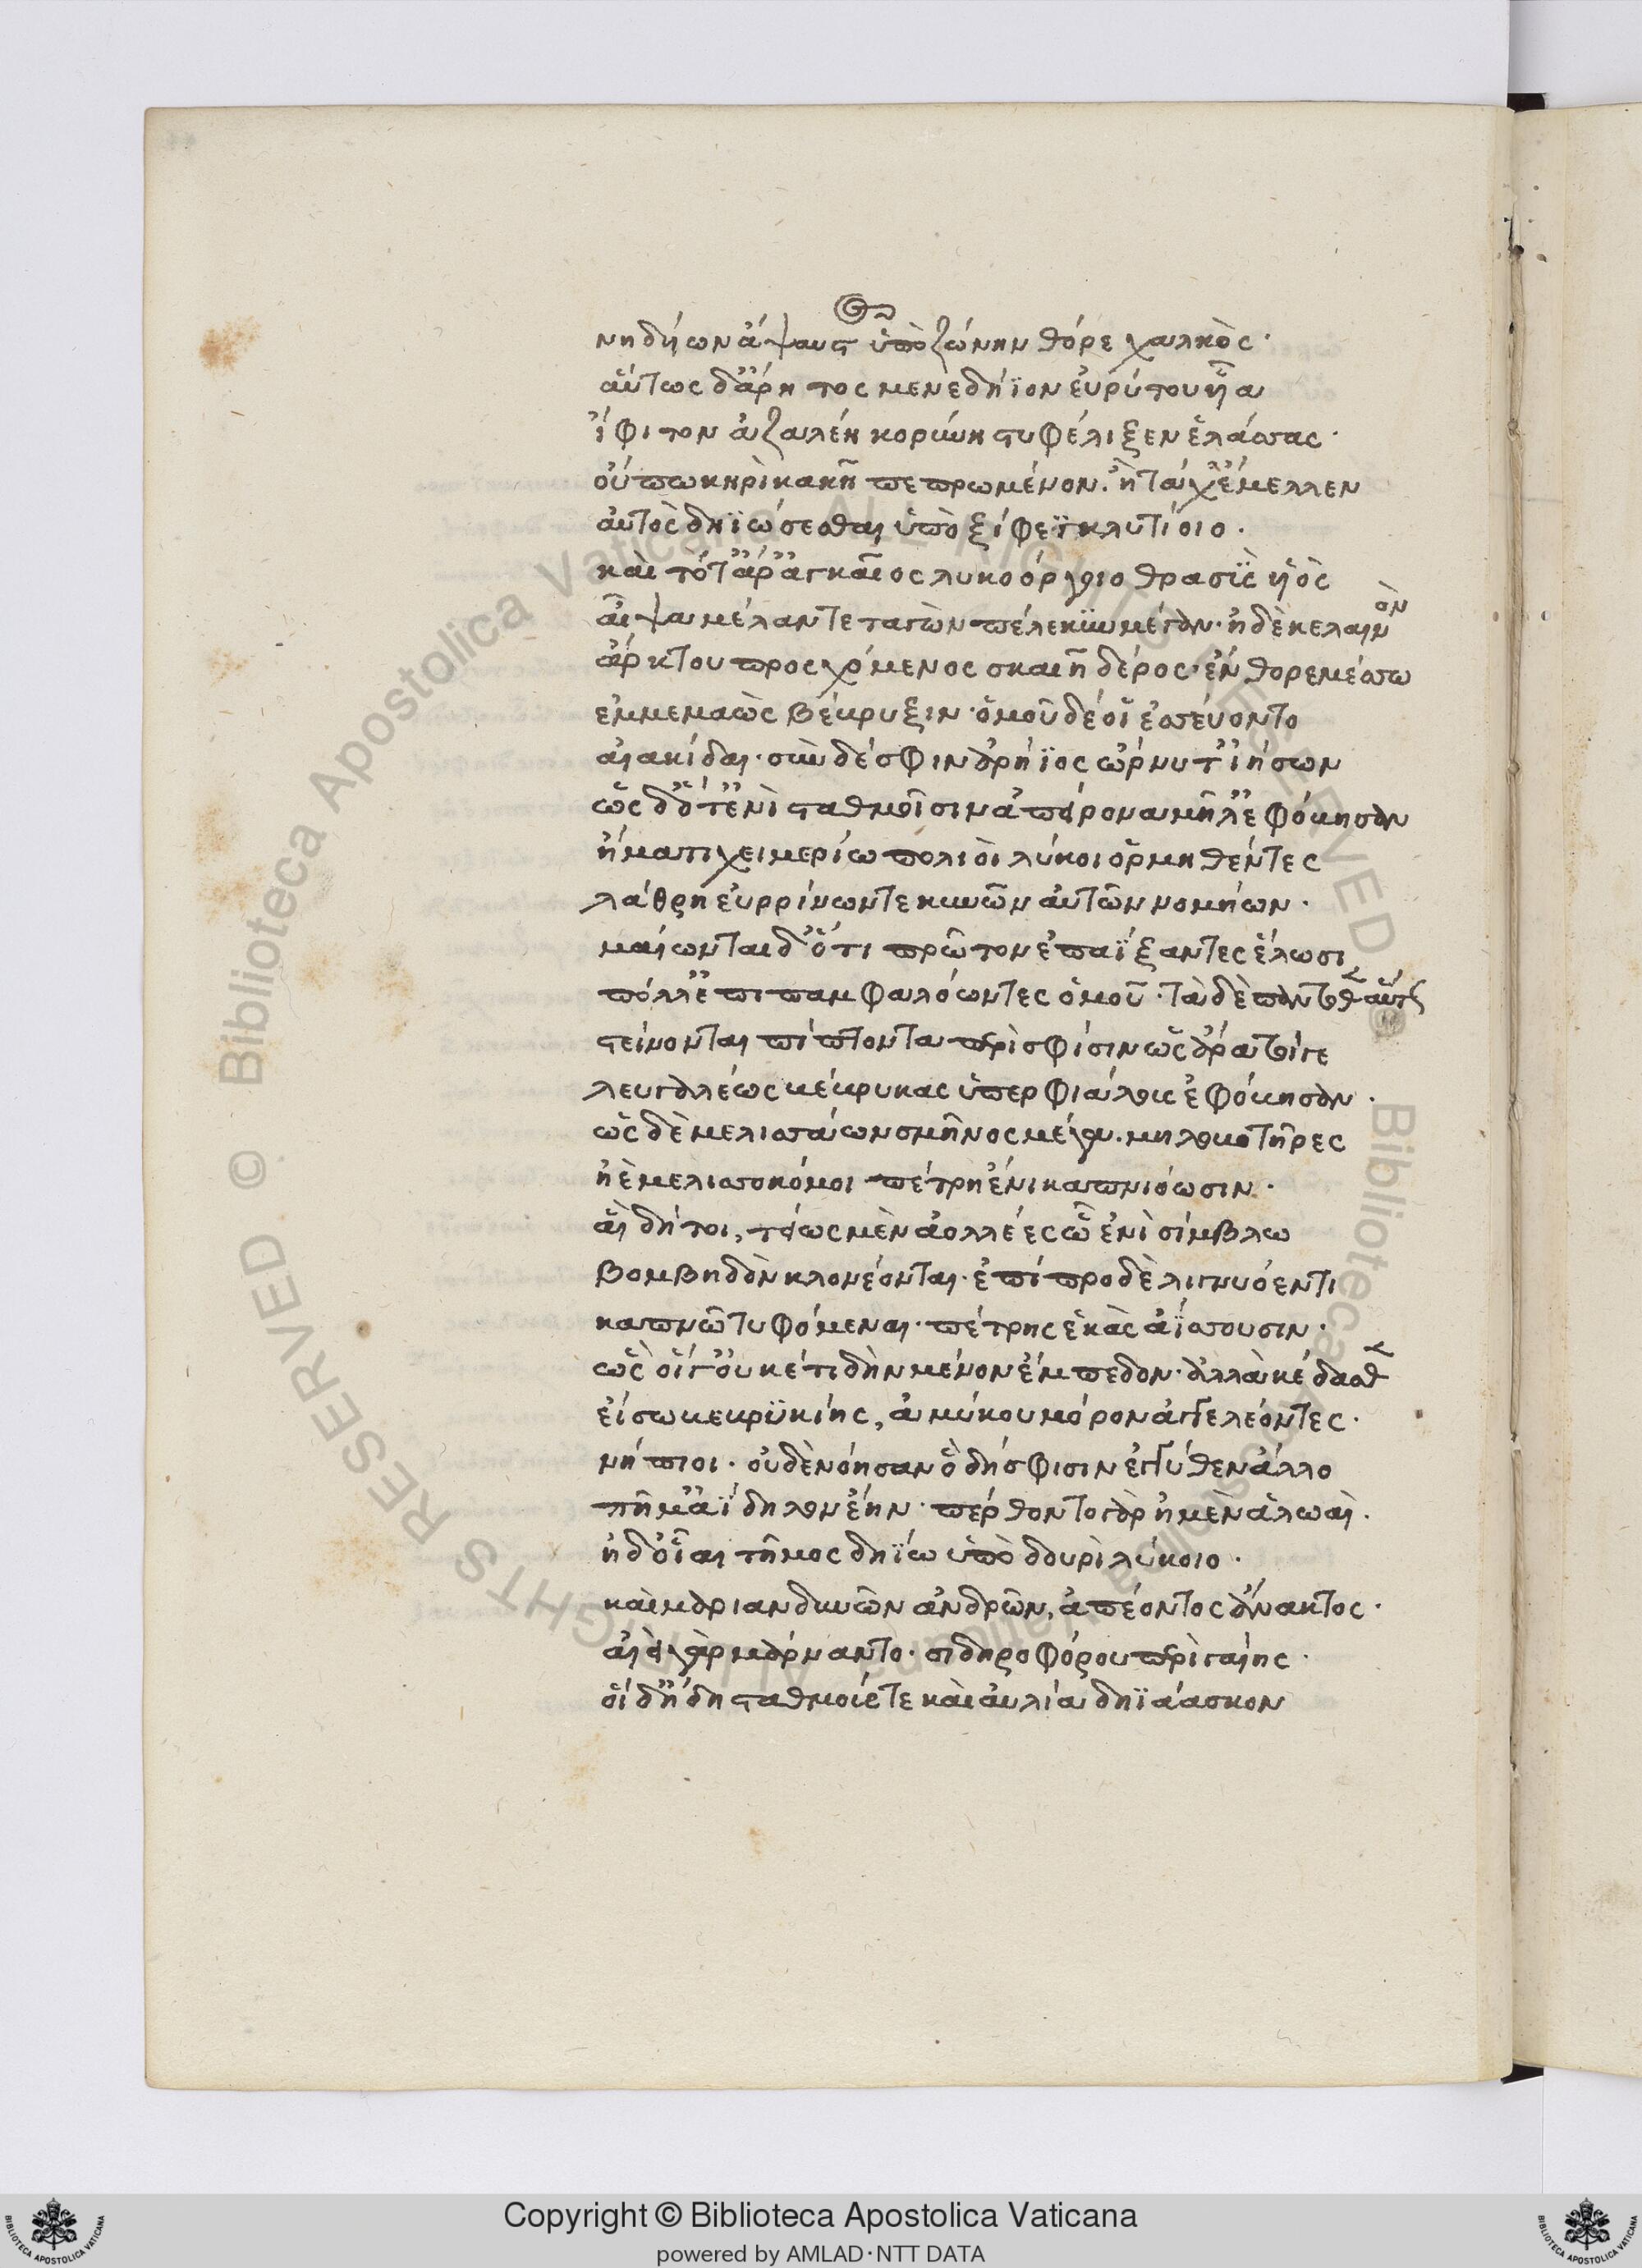 νηδήων ἄψαυστ ὑπὸ ζώνην θόρε χαλκὸς·
αὔτως δ' ἄρητος μενεδήϊον εὐρύτου ἧα
ἴφιτον ἀζαλέη κορύνη στυφέλιξεν ἐλάσσας·
οὔπω κηρὶ κακῆ πεπρωμένον. ἢ τάχ' ἔμελλεν
αὐτὸς δηϊώσεσθαι ὑπὸ ξίφεϊ κλυτίοιο.
καὶ τότ' ἄρ' ἀγκαῖος λυκοόργοιο θρασὺς ὑιὸς
αἶψα μέλαν τεταγὼν πέλεκυν μέγαν. ἠδὲ κελαινὸν
ἄρκτου προσχόμενος σκαιῆ δέρος· ἔνθορε μέσσω
ἐμμεμαὼς βέβρυξιν· ὁμοῦ δέ οἱ ἐσσεύοντο
αἰακίδαι. σὺν δέ σφιν ἀρήϊος ὤρνυτ' ἰήσων
ὡς δ' ὅτ' ἐνὶ σταθμοῖσιν ἀπείρονα μῆλ' ἐφόβησαν
ἤματι χειμερίω πολιοὶ λύκοι ὁρμηθέντες
λάθρη ἐυρρίνων τε κυνῶν αὐτῶν νομήων.
μαίωνται δ' ὅ τι πρῶτον ἐπαΐξαντες ἕλωσι
πόλλ' ἐπιπαμφαλόωντες ὁμοῦ. τὰ δὲ πάντοθεν αὔτως
στείνονται πίπτοντα περὶ σφίσιν ὡς ἄρα τοίγε
λευγαλέως βέβρυκας ὑπερφιάλους ἐφόβησαν.
ὡς δὲ μελισσάων σμῆνος μέγα. μηλοβοτῆρες
ἠὲ μελισσοκόμοι πέτρη ἔνι καπνιόωσιν.
αἱ δή τοι, τείως μὲν ἀολλέες ὧ ἐνὶ σίμβλω
βομβηδὸν κλονέονται. ἐπίπρο δὲ λιγνυόεντι
καπνῶ τυφόμεναι. πέτρης ἑκὰς ἀΐσσουσιν.
ὡς οἵγ' οὐκέτι δὴν μένον ἔμπεδον. ἀλλὰ κέδασθεν
εἴσω βεβρυκίης, ἀμύκου μόρον ἀγγελέοντες.
νήπιοι. οὐδ' ἐνόησαν ὃ δή σφισιν ἐγγύθεν ἄλλο
πῆμ' ἀΐδηλον ἔην. πέρθοντο γὰρ ἠμὲν ἀλωαὶ.
ἠδ' οἶαι τῆμος δηΐω ὑπὸ δουρὶ λύκοιο.
καὶ μαριανδυνῶν ἀνδρῶν, ἀπέοντος ἄνακτος.
αἰεὶ γὰρ μάρναντο. σιδηροφόρου περὶ γαίης.
οἱ δ' ἤδη σταθμούς τε καὶ αὐλία δηϊάασκον